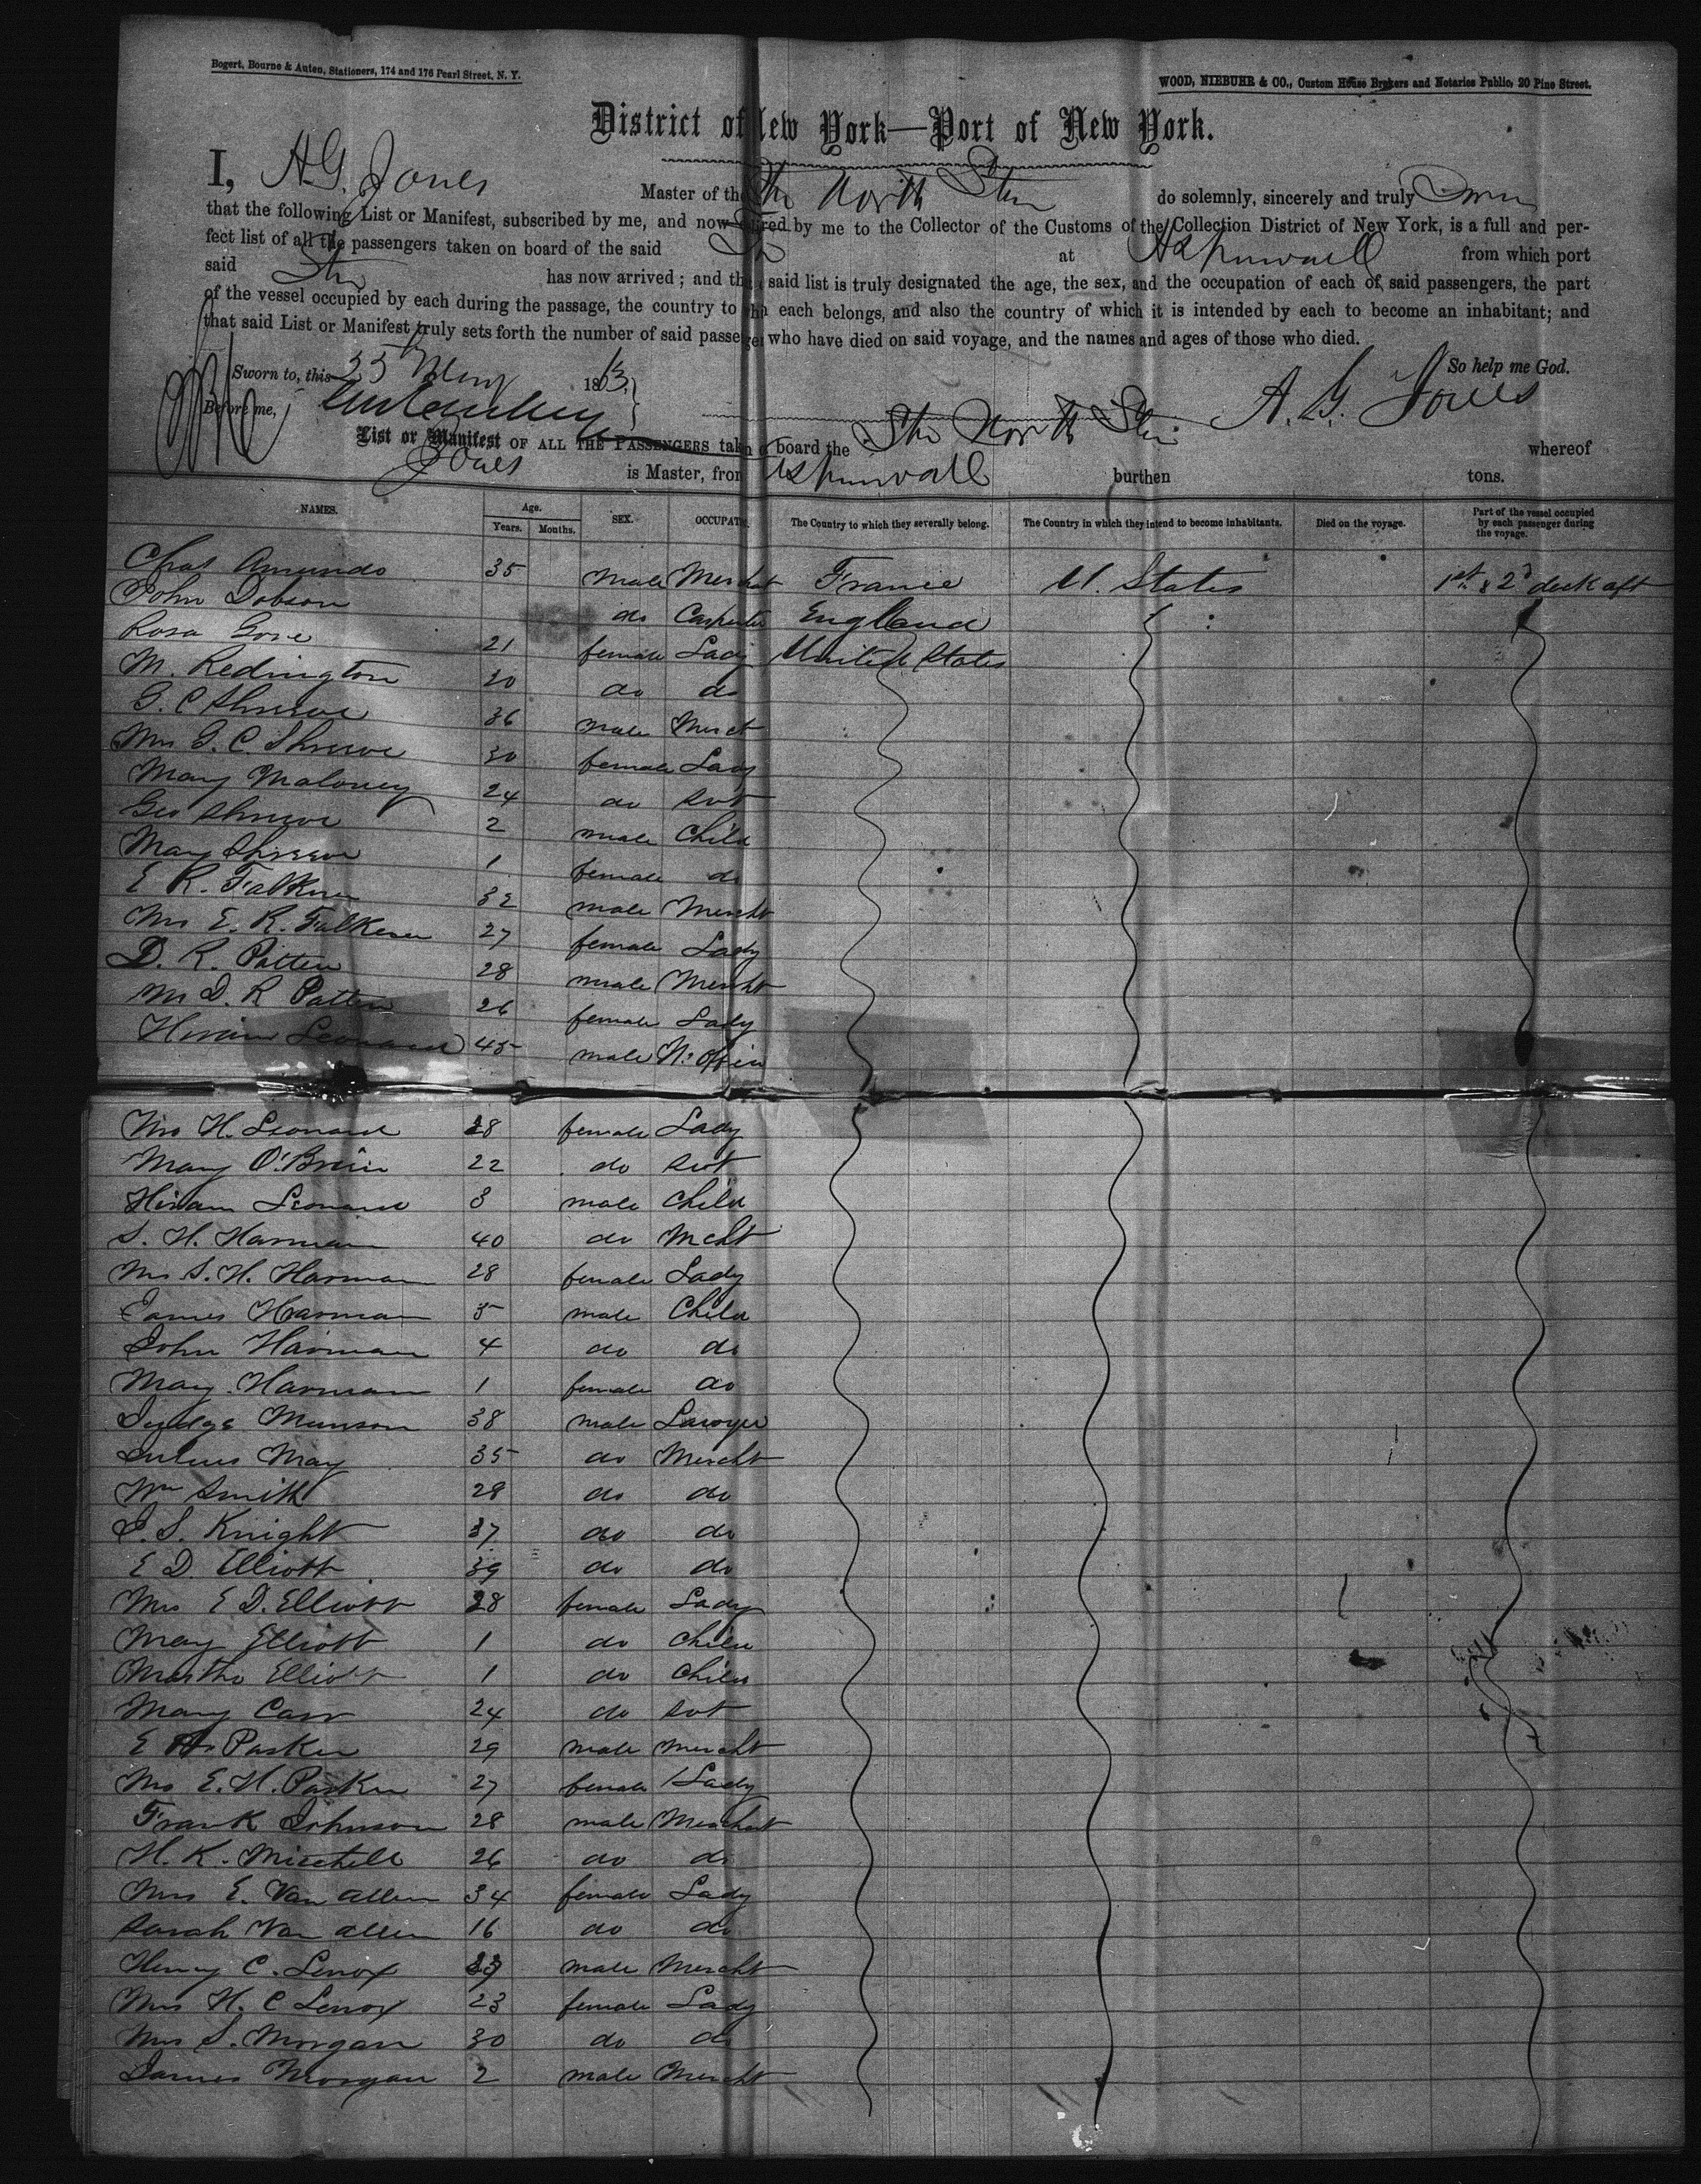 Bogert, Bourne & Auten, Stationers, 174 and 176 Pearl Street, N. Y.
WOOD, NIEBUHR & CO., Custom House Brokers and Notaries Public, 20 Pine Street.
District of New York—Port of New York.
I, A. G. Jones Master of the Str North Star do solemnly, sincerely and truly
that the following List or Manifest, subscribed by me, and now by me to the Collector of the Customs of the Collection District of New York, is a full and per-
fect list of all the passengers taken on board of the said Str at Aspinwall from which port
said Str has now arrived; and th said list is truly designated the age, the sex, and the occupation of each of said passengers, the part
of the vessel occupied by each during the passage, the country to each belongs, and also the country of which it is intended by each to become an inhabitant; and
that said List or Manifest truly sets forth the number of said passe who have died on said voyage, and the names and ages of those who died.
So help me God.
Sworn to, this 25 May 1863.
Before me, A. G. Jones
List or Manifest OF ALL THE PASSENGERS taken board the Str North Star whereof
Jones is Master, from Aspinwall burthen tons.
NAMES. Age. Years. Months. SEX. OCCUPAT The Country to which they severally belong. The Country in which they intend to become inhabitants. Died on the voyage. Part of the vessel occupied by each passenger during the voyage.
Chas Amundo 35 male Merchat France U. States 1st & 2d deck aft
John Dobson do Carpenter England
Rosa Gore 21 female Lady United States
M. Redington 20 do do
G. C Shreeve 36 male Mercht
Mrs G. C. Shreeve 30 female Lady
Mary Maloney 24 do Svt
Geo Shreeve 2 male Child
Mary Shreeve 1 female do
E R. Falkner 32 male Mercht
Mrs E. R. Falkner 27 female Lady
D. R. Patten 28 male Mercht
Mrs D. R Patten 26 female Lady
Hiram Leonard 45 male
Mrs H. Leonard 28 female Lady
Mary O'Brien 22 do Svt
Hiram Leonard 3 male Child
S. H. Harman 40 do Mcht
Mrs S. H. Harman 28 female Lady
James Harman 5 male Child
John Harman 4 do do
Mary Harman 1 female do
Judge Munson 38 male Lawyer
Julius May 35 do Mercht
Wm Smith 28 do do
J. S. Knight 37 do do
E D. Elliott 39 do do
Mrs E D. Elliott 28 female Lady
Mary Elliott 1 do Child
Martha Elliott 1 do Child
Mary Carr 24 do Svt
E H Parker 29 male Mercht
Mrs E. H. Parker 27 female Lady
Frank Johnson 28 male Merchant
H. K. Mitchell 26 do do
Mrs E. Van Allen 34 female Lady
Sarah Van Allen 16 do do
Henry C. Lenox male Mercht
Mrs H. C Lenox 23 female Lady
Mrs S. Morgan 30 do do
James Morgan 2 male Mercht